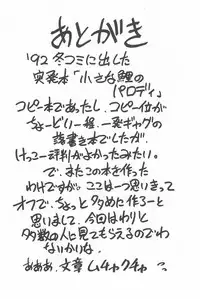 あとがき
'92 冬コミに出した
突発本「小さな鯉の
パロディ」
コピー本であったし、コピー位が
ちょーどいー程、一発ギャグの
落書き本でしたが、
けっこー評判がよかったみたい。
で、またこの本を作った
わけですが、ここは一つ思いきって
オフで、ちょっと多めに作ろーと
思いまして、今回はわりと
多数の人に見てもらえるのでわ
ないかりな。
あああ、文章ムチャクチャ